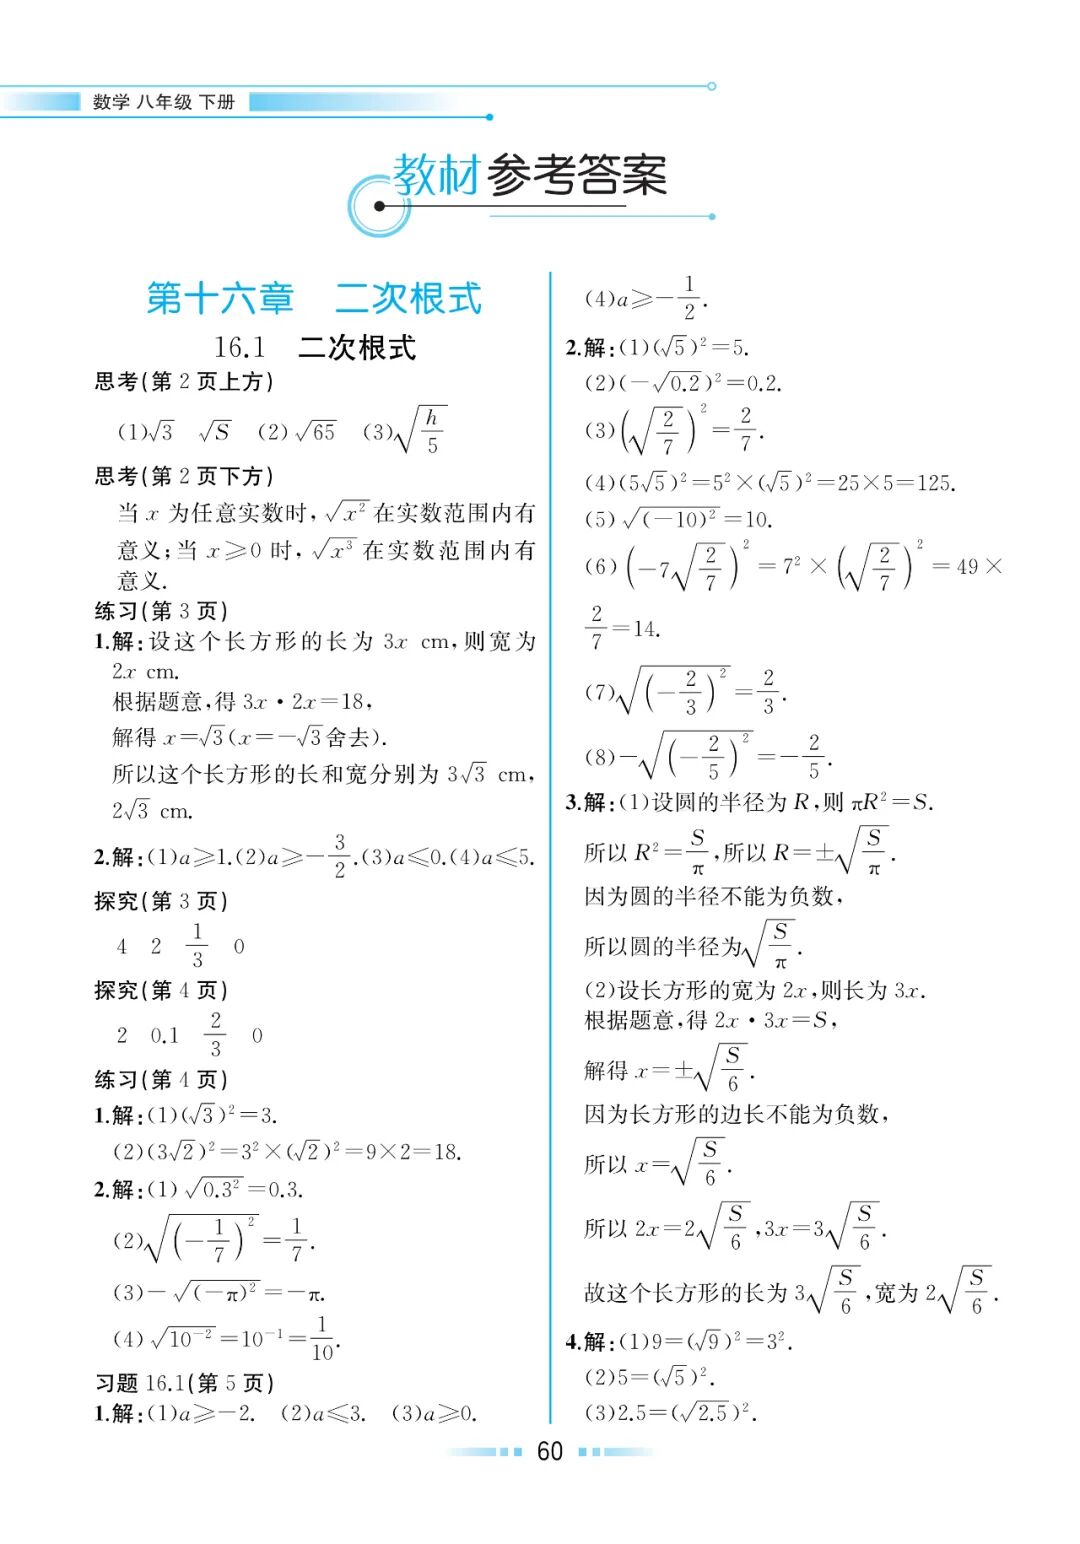 数学 八年级 下册
教材参考答案
第十六章 二次根式
16.1 二次根式
思考(第 2 页上方)
(1)√3 √S (2)√65 (3)√(h/5)
思考(第 2 页下方)
当 x 为任意实数时,√(x²) 在实数范围内有
意义;当 x⩾0 时,√(x³) 在实数范围内有
意义.
练习(第 3 页)
1.解:设这个长方形的长为 3x cm,则宽为
2x cm.
根据题意,得 3x·2x=18,
解得 x=√3(x=-√3舍去).
所以这个长方形的长和宽分别为 3√3 cm,
2√3 cm.
2.解:(1)a⩾1.(2)a⩾-3/2.(3)a⩽0.(4)a⩽5.
探究(第 3 页)
4 2 1/3 0
探究(第 4 页)
2 0.1 2/3 0
练习(第 4 页)
1.解:(1)(√3)²=3.
(2)(3√2)²=3²×(√2)²=9×2=18.
2.解:(1)√(0.3²)=0.3.
(2)√((-1/7)²)=1/7.
(3)-√((-π)²)=-π.
(4)√(10⁻²)=10⁻¹=1/10.
习题 16.1(第 5 页)
1.解:(1)a⩾-2. (2)a⩽3. (3)a⩾0.
(4)a⩾-1/2.
2.解:(1)(√5)²=5.
(2)(-√0.2)²=0.2.
(3)(√(2/7))²=2/7.
(4)(5√5)²=5²×(√5)²=25×5=125.
(5)√((-10)²)=10.
(6)(-7√(2/7))²=7²×(√(2/7))²=49×
2/7=14.
(7)√((-2/3)²)=2/3.
(8)-√((-2/5)²)=-2/5.
3.解:(1)设圆的半径为 R,则 πR²=S.
所以 R²=S/π,所以 R=±√(S/π).
因为圆的半径不能为负数,
所以圆的半径为√(S/π).
(2)设长方形的宽为 2x,则长为 3x.
根据题意,得 2x·3x=S,
解得 x=±√(S/6).
因为长方形的边长不能为负数,
所以 x=√(S/6).
所以 2x=2√(S/6),3x=3√(S/6).
故这个长方形的长为 3√(S/6),宽为 2√(S/6).
4.解:(1)9=(√9)²=3².
(2)5=(√5)².
(3)2.5=(√2.5)².
60